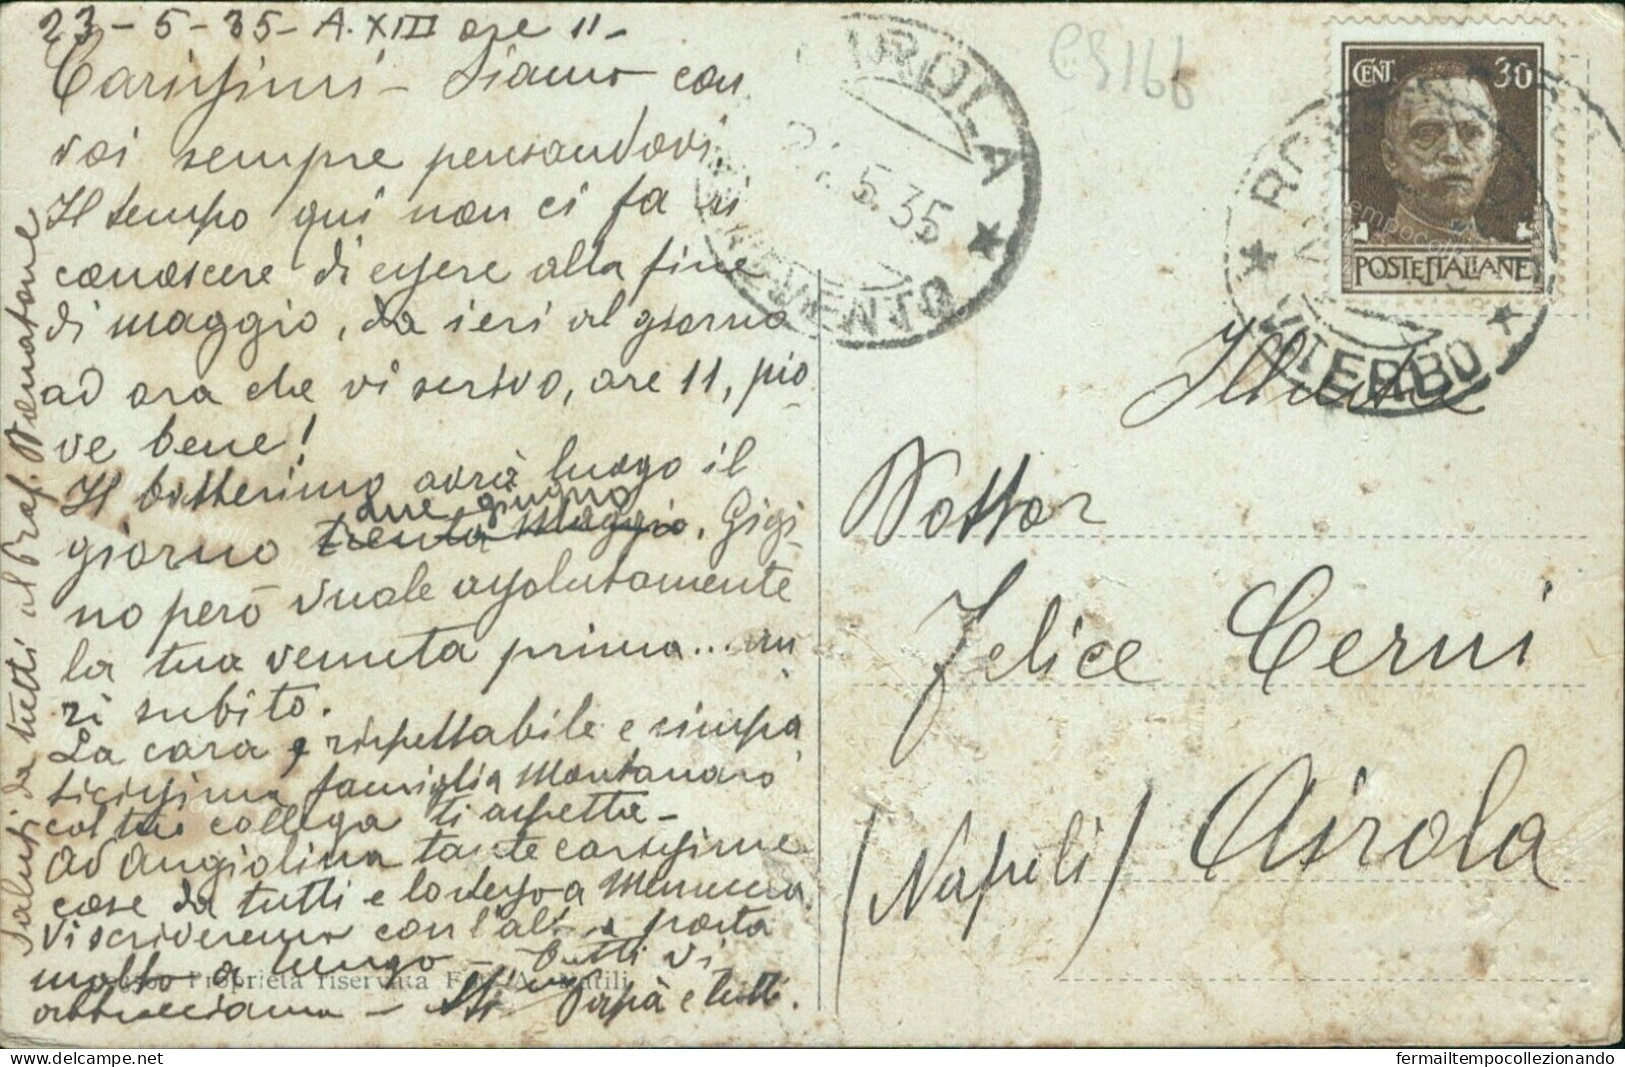 23-5-35- A. XIII ore 11-
Carissimi - Siamo con
voi sempre pensandovi.
Il tempo qui non ci fa ri
conoscere di essere alla fine
di maggio, da ieri al giorno
ad ora che vi scrivo, ore 11, pio-
ve bene!
Il battesimo avrà luogo il
due giugno
giorno trenta Maggio. Gigi-
no però vuole assolutamente
la tua venuta prima... an
zi subito.
La cara e rispettabile e simpa
ticissima famiglia Montanaro
col tuo collega ti aspetta -
Ad Angiolina tante carissime
cose da tutti e lo stesso a
Vi scriveremo con l'al a posta
molto a lungo - tutti vi
abbracciamo - Papà e tutti.
Saluti da tutti al Prof.
Proprietà riservata
C9166
AIROLA
5.35
BENEVENTO
CENT 30
POSTE ITALIANE
VITERBO
Illustre
Dottor
Felice Cerni
(Napoli) Airola
fermailtempocollezionando